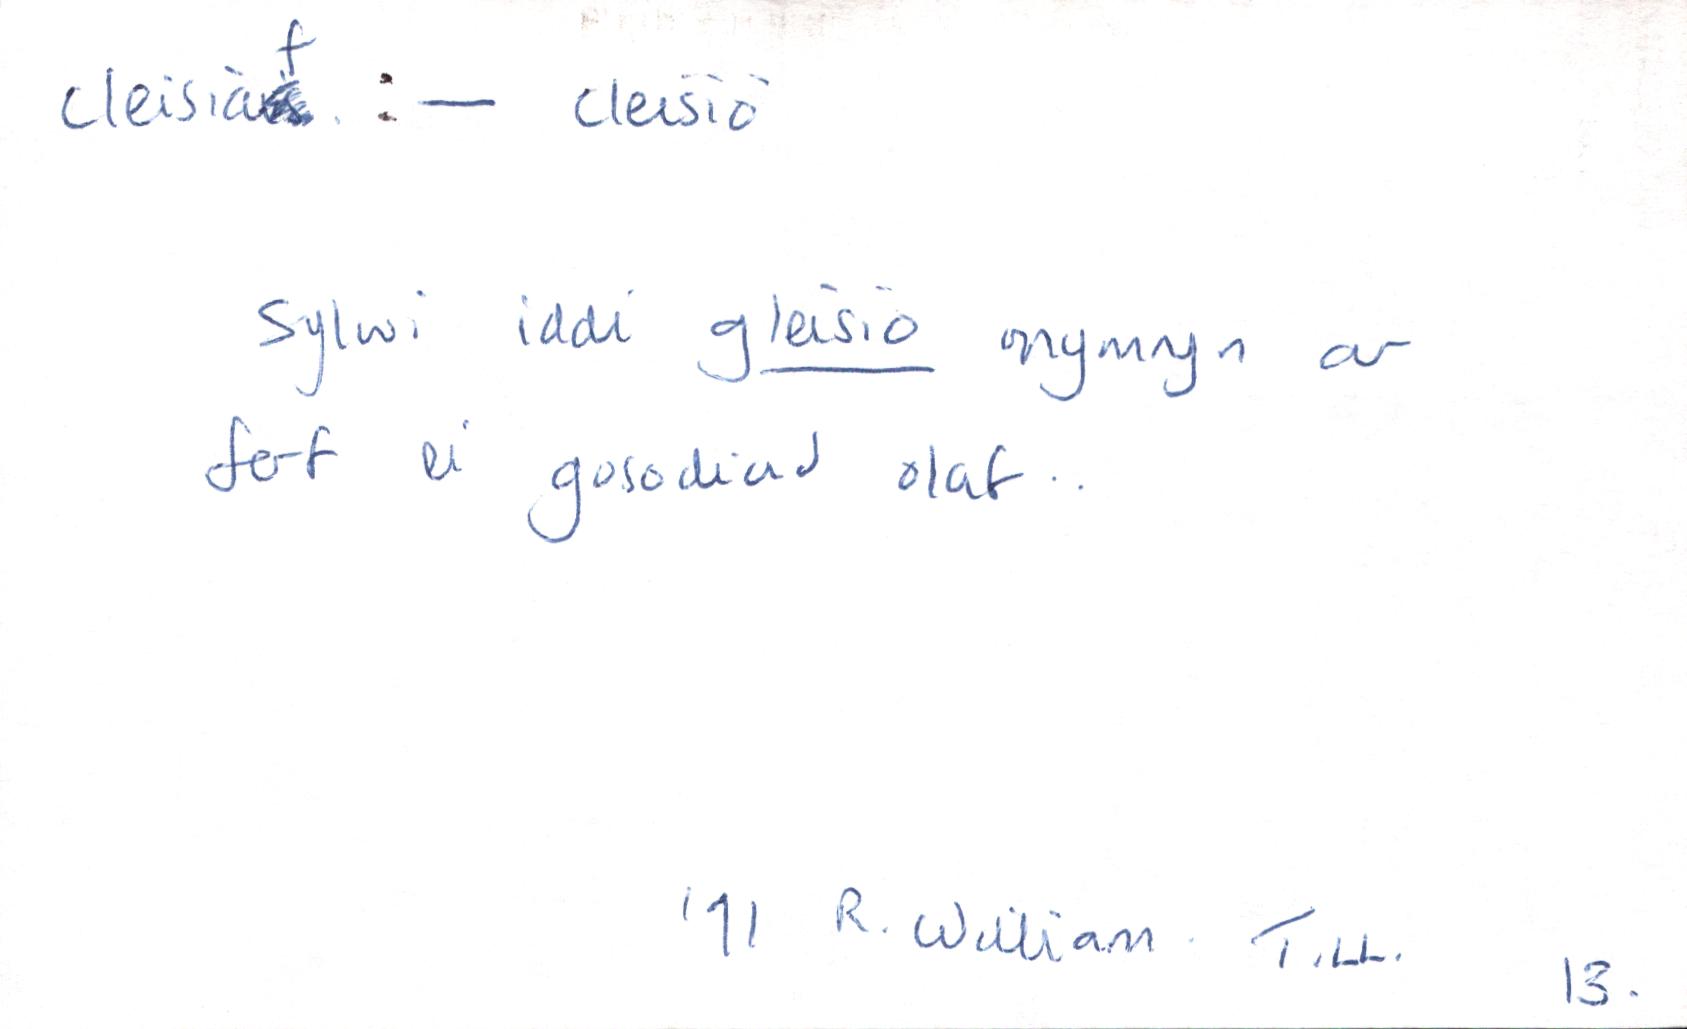 cleisiaf :— cleisio
Sylwi iddi gleisio mymryn ar
fer ei gosodiad olaf..
'91 R. William. T.LL. 13.